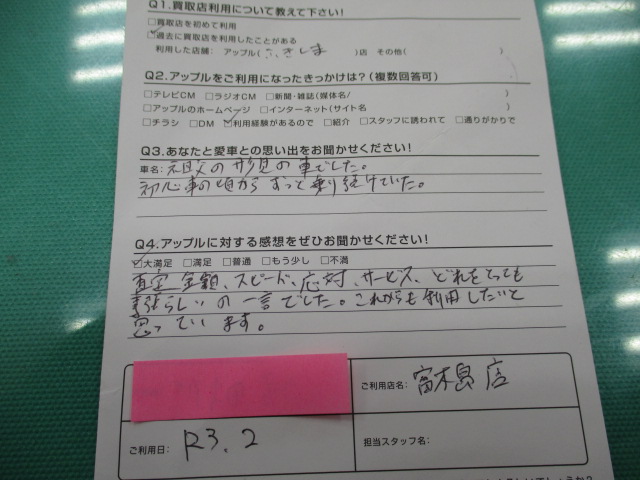 Q1.買取店利用について教えて下さい!
□買取店を初めて利用
☑過去に買取店を利用したことがある
利用した店舗: アップル(ふきしま )店 その他( )
Q2.アップルをご利用になったきっかけは?(複数回答可)
□テレビCM □ラジオCM □新聞・雑誌(媒体名/ )
□アップルのホームページ □インターネット(サイト名 )
□チラシ □DM ☑利用経験があるので □紹介 □スタッフに誘われて □通りがかりで
Q3.あなたと愛車との思い出をお聞かせください!
車名: 祖父の形見の車でした。
初心車の頃からずっと乗り続けていた。
Q4.アップルに対する感想をぜひお聞かせください!
☑大満足 □満足 □普通 □もう少し □不満
査定金額、スピード、応対、サービス、どれをとっても
素晴らしいの一言でした。これからも利用したいと
思っています。
ご利用店名: 富木島店
ご利用日: R3.2
担当スタッフ名: